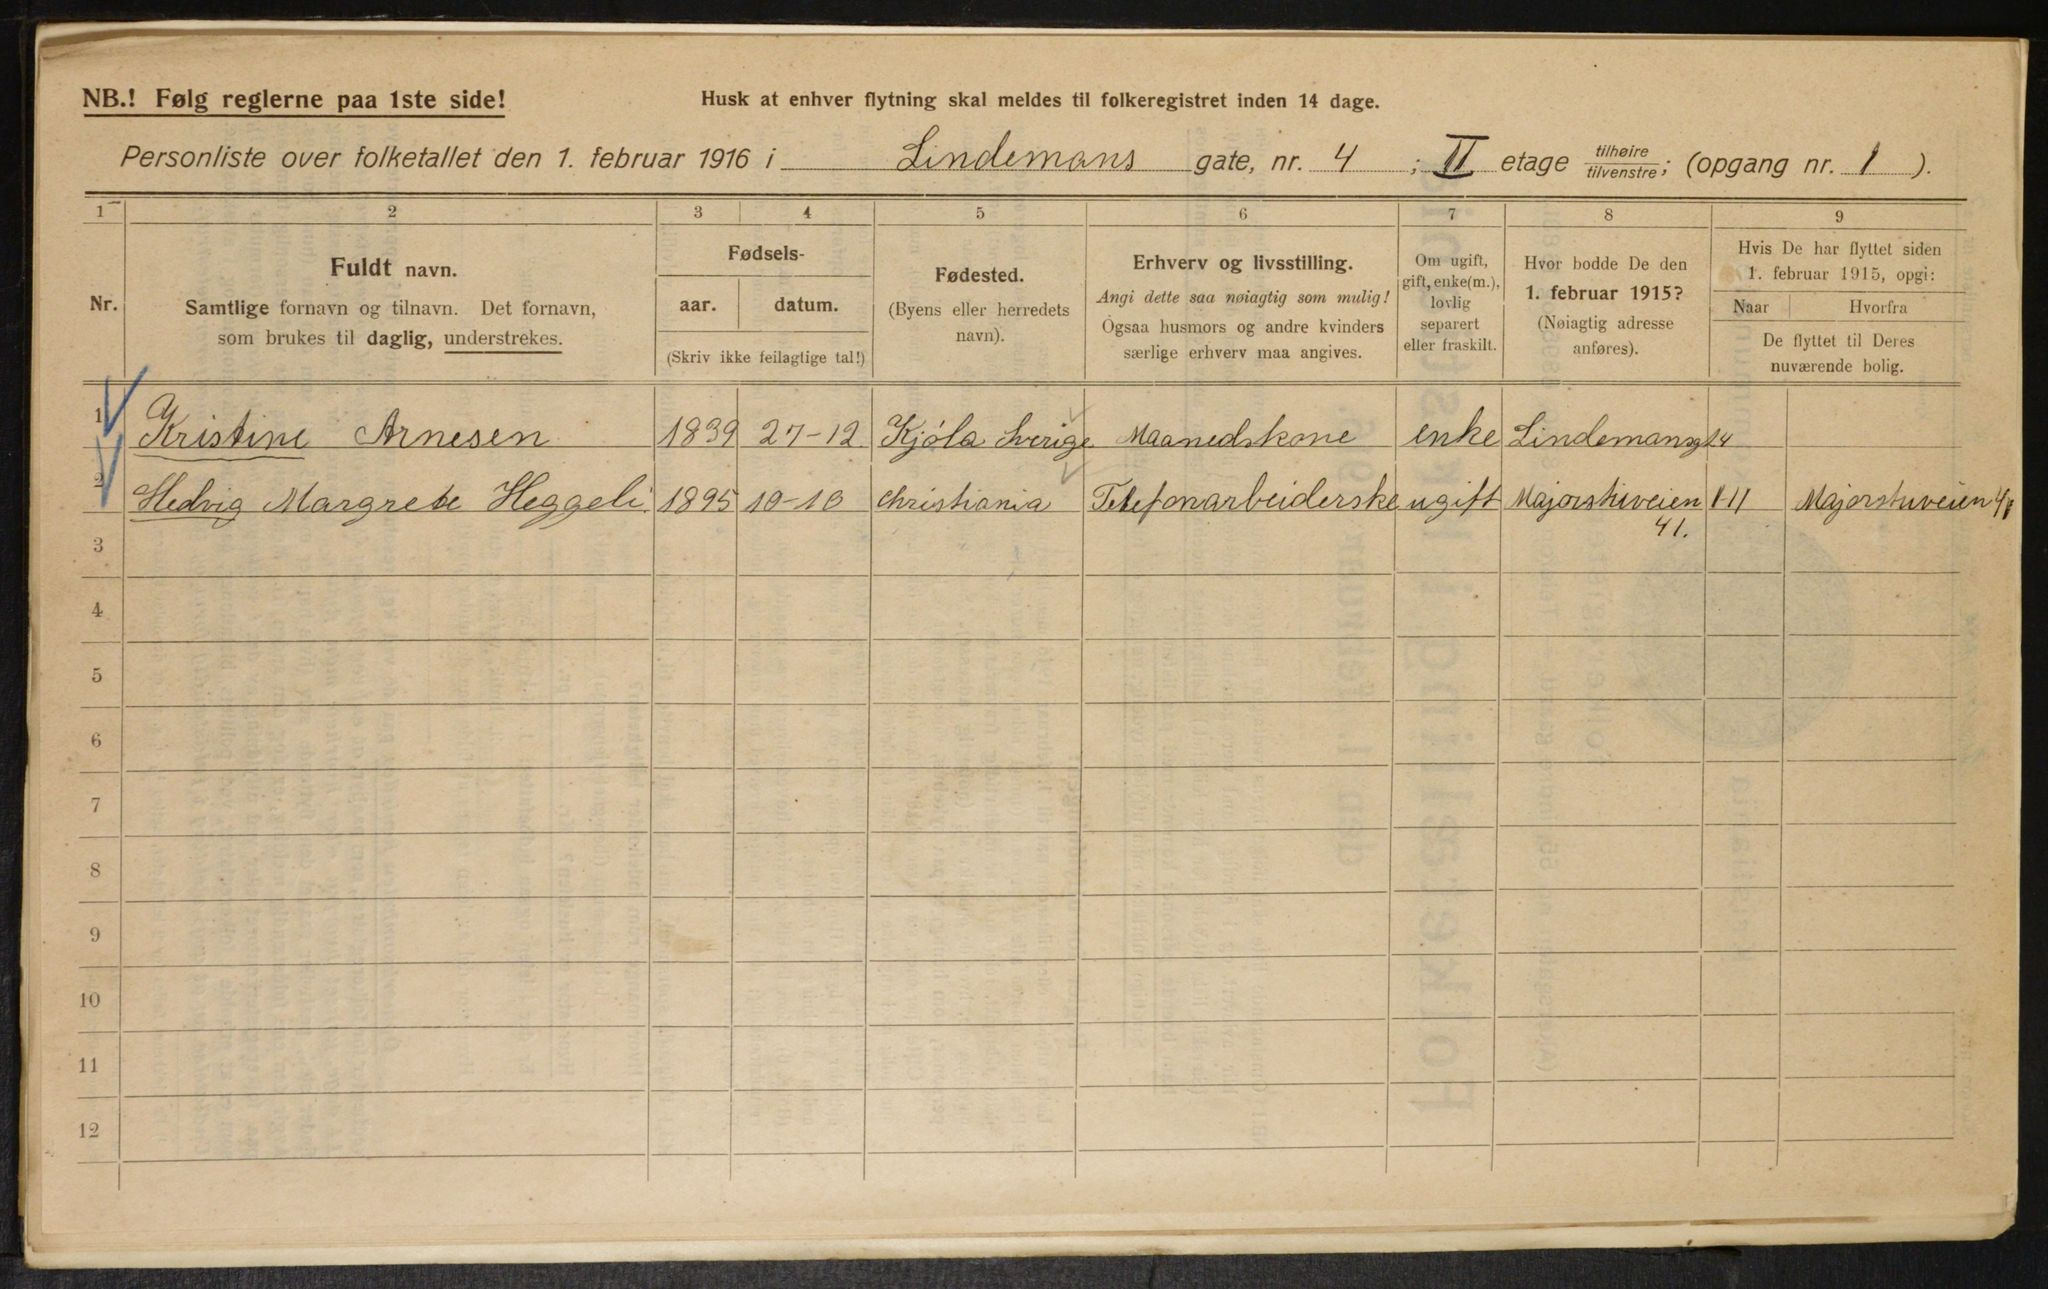 NB.! Følg reglerne paa 1ste side!
Husk at enhver flytning skal meldes til folkeregistret inden 14 dage.
Personliste over folketallet den 1. februar 1916 i Lindemans gate, nr. 4 ; II etage tilhøire/tilvenstre; (opgang nr. 1 ).
1 2 3 4 5 6 7 8 9
Nr.
Fuldt navn.
Samtlige fornavn og tilnavn. Det fornavn,
som brukes til daglig, understrekes.
Fødsels-
aar. datum.
(Skriv ikke feilagtige tal!)
Fødested.
(Byens eller herredets
navn).
Erhverv og livsstilling.
Angi dette saa nøiagtig som mulig!
Ogsaa husmors og andre kvinders
særlige erhverv maa angives.
Om ugift,
gift, enke(m.),
lovlig
separert
eller fraskilt.
Hvor bodde De den
1. februar 1915?
(Nøiagtig adresse
anføres).
Hvis De har flyttet siden
1. februar 1915, opgi:
Naar Hvorfra
De flyttet til Deres
nuværende bolig.
1 Kristine Arnesen 1839 27-12 Kjöla Sverige Maanedskone enke Lindemansg 4
2 Hedvig Margrete Heggeli 1895 10-10 Christiania Telefonarbeiderske ugift Majorstuveien 1-11 Majorstuveien 41
41.
3
4
5
6
7
8
9
10
11
12